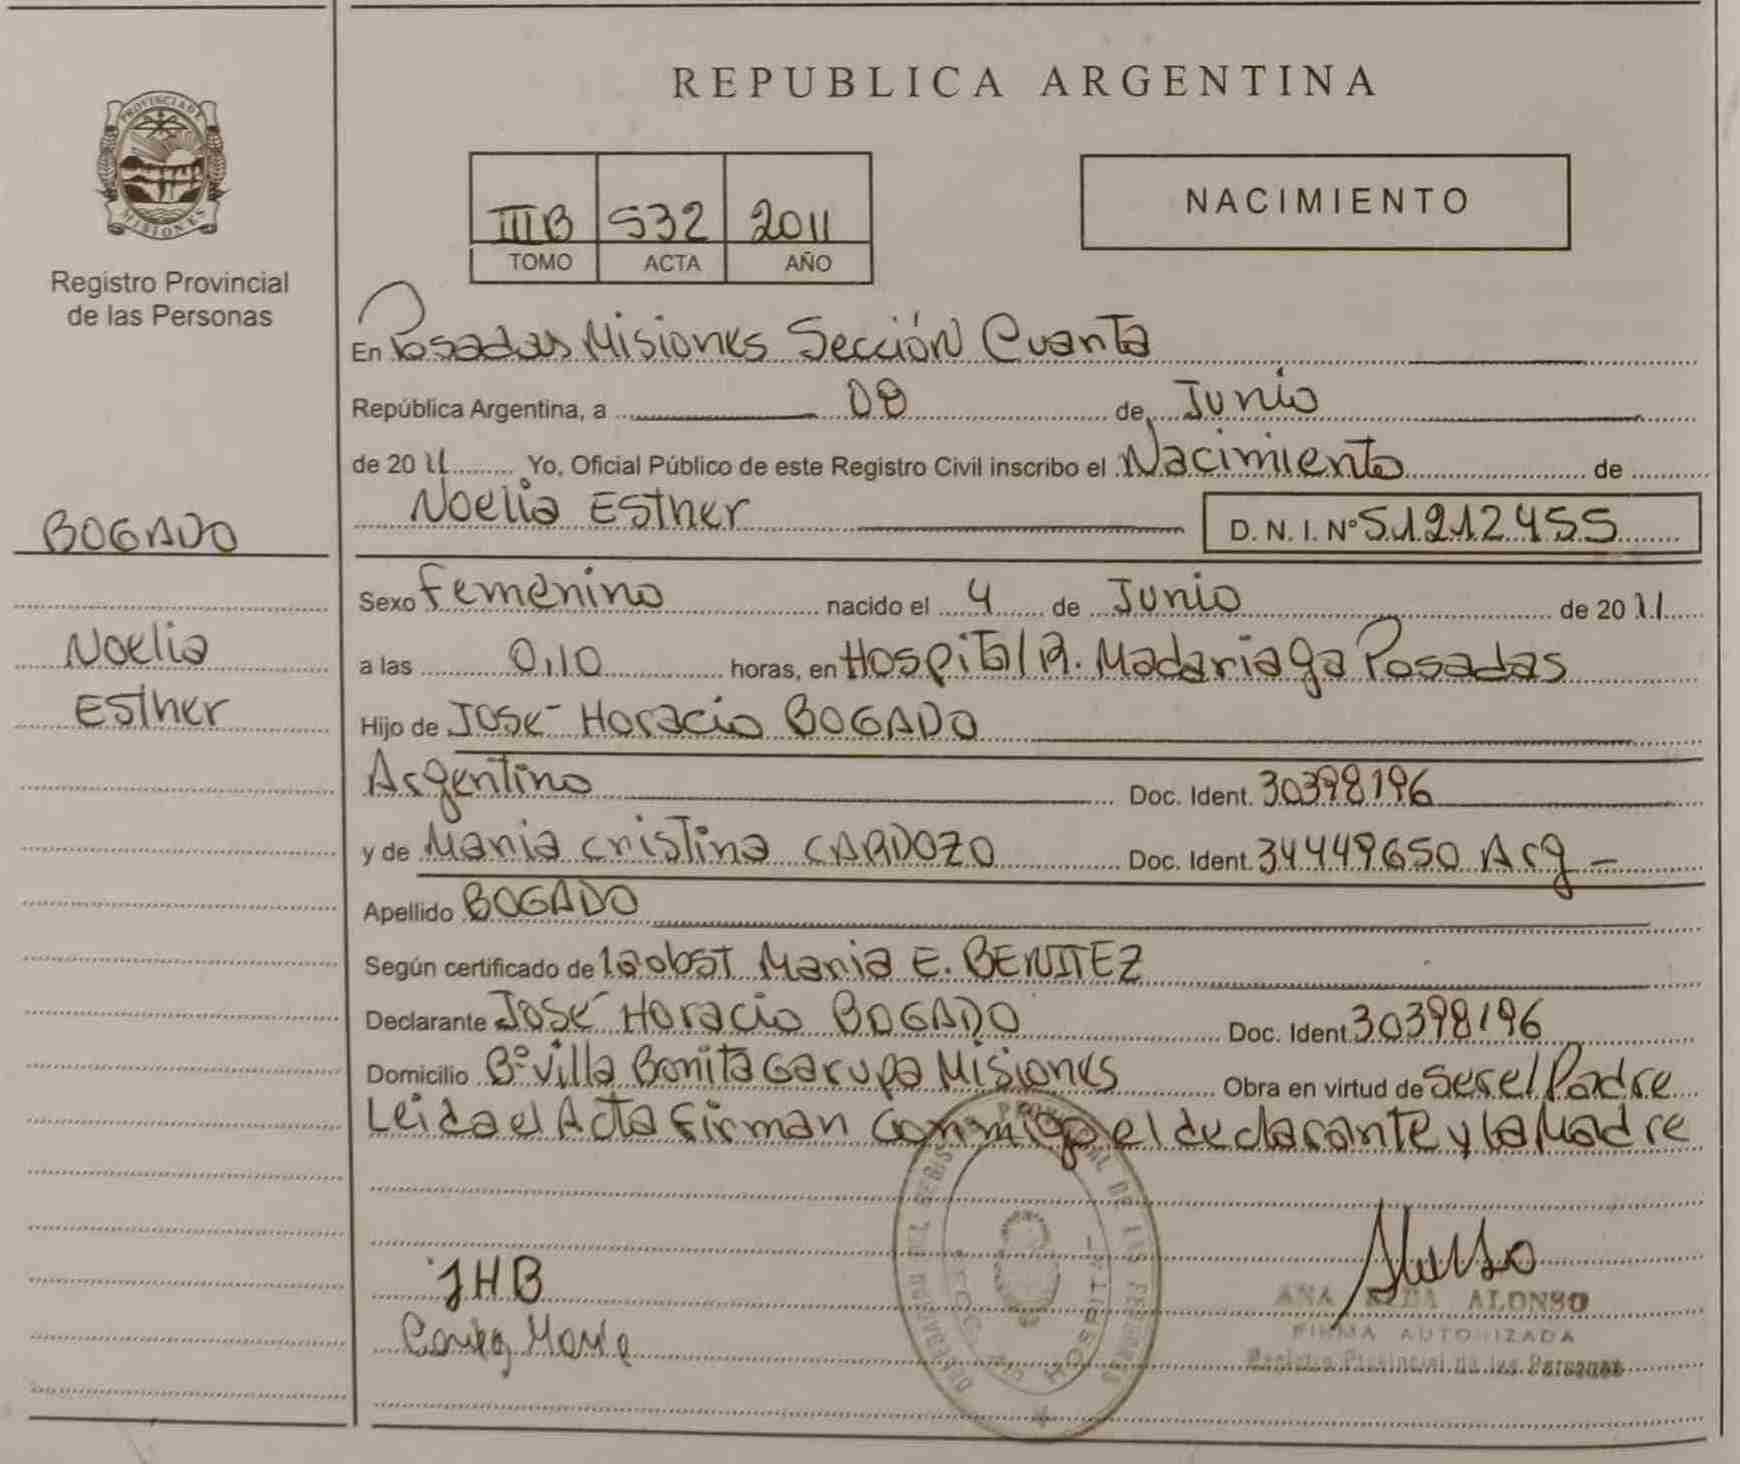 PROVINCIA DE
MISIONES
Registro Provincial
de las Personas
BOGADO
Noelia
Esther
REPUBLICA ARGENTINA
III B 532 2011
TOMO ACTA AÑO
NACIMIENTO
En Posadas Misiones Sección Cuarta
República Argentina, a 08 de Junio
de 20 11 Yo, Oficial Público de este Registro Civil inscribo el Nacimiento de
Noelia Esther D. N. I. Nº 51212455
Sexo Femenino nacido el 4 de Junio de 20 11
a las 0,10 horas, en Hospital R. Madariaga Posadas
Hijo de José Horacio BOGADO
Argentino Doc. Ident. 30398196
y de Maria Cristina CARDOZO Doc. Ident. 34449650 Arg -
Apellido BOGADO
Según certificado de Obst Maria E. BENITEZ
Declarante José Horacio BOGADO Doc. Ident. 30398196
Domicilio Bº Villa Bonita Garupa Misiones Obra en virtud de ser el Padre
Leida el Acta firman conmigo el declarante y la Madre
JHB
ANA ALONSO
FIRMA AUTORIZADA
Registro Provincial de las Personas